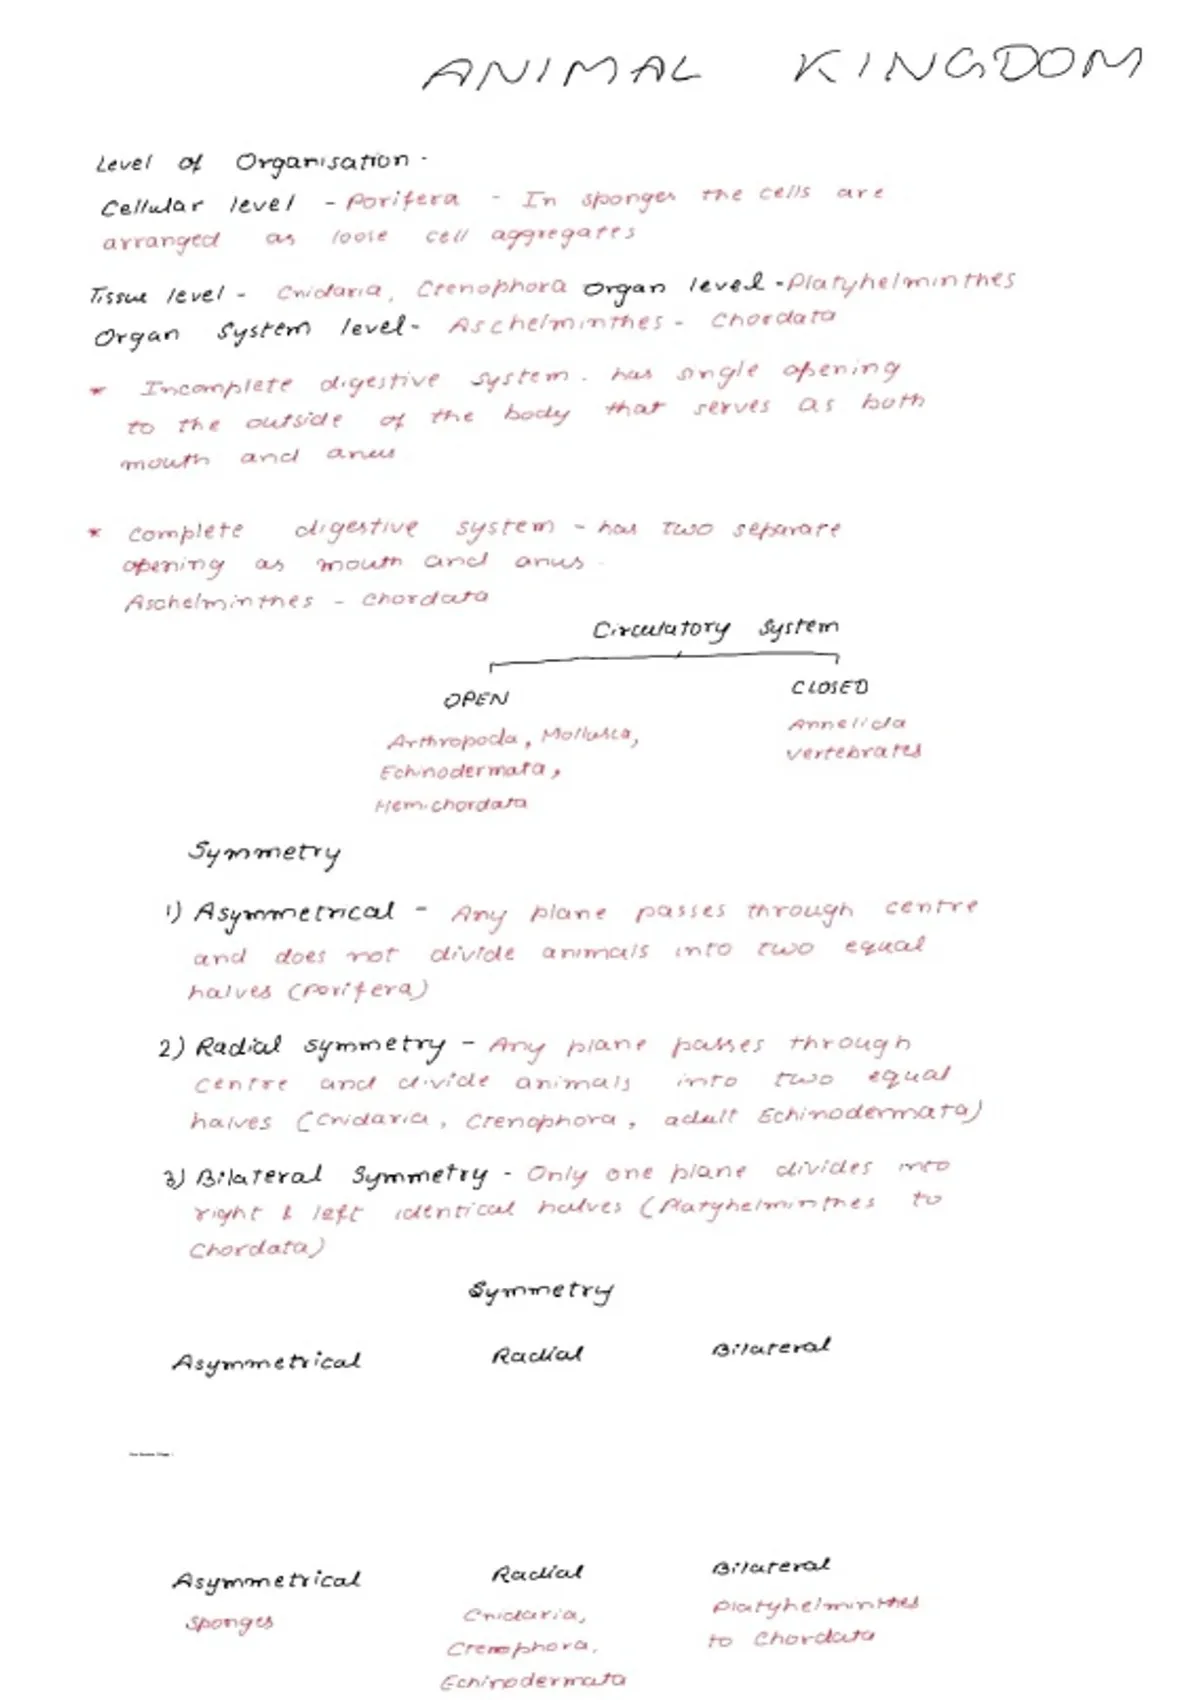 ANIMAL KINGDOM
Level of Organisation -
Cellular level - Porifera - In sponges the cells are
arranged as loose cell aggregates
Tissue level - Cnidaria, Ctenophora Organ level - Platyhelminthes
Organ System level - Aschelminthes - Chordata
* Incomplete digestive system - has single opening
to the outside of the body that serves as both
mouth and anus
* complete digestive system - has two separate
opening as mouth and anus.
Aschelminthes - Chordata
Circulatory System
OPEN CLOSED
Arthropoda, Mollusca, Annelida
Echinodermata, vertebrates
Hemichordata
Symmetry
1) Asymmetrical - Any plane passes through centre
and does not divide animals into two equal
halves (Porifera)
2) Radial symmetry - Any plane passes through
centre and divide animals into two equal
halves (Cnidaria, Ctenophora, adult Echinodermata)
3) Bilateral Symmetry - Only one plane divides into
right & left identical halves (Platyhelminthes to
Chordata)
Symmetry
Asymmetrical Radial Bilateral
Asymmetrical Radial Bilateral
Sponges Cnidaria, Platyhelminthes
Ctenophora, to Chordata
Echinodermata